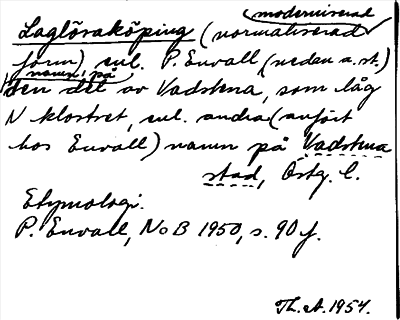 moderniserad
Laglösaköping (normaliserad
form) enl. P. Envall (nedan a. st.)
namn på
den del av Vadstena, som låg
N klostret, enl. andra (anfört
hos Envall) namn på Vadstena
stad, Östg. l.
Etymologi.
P. Envall, NoB 1950, s. 90 f.
Th. A. 1954.